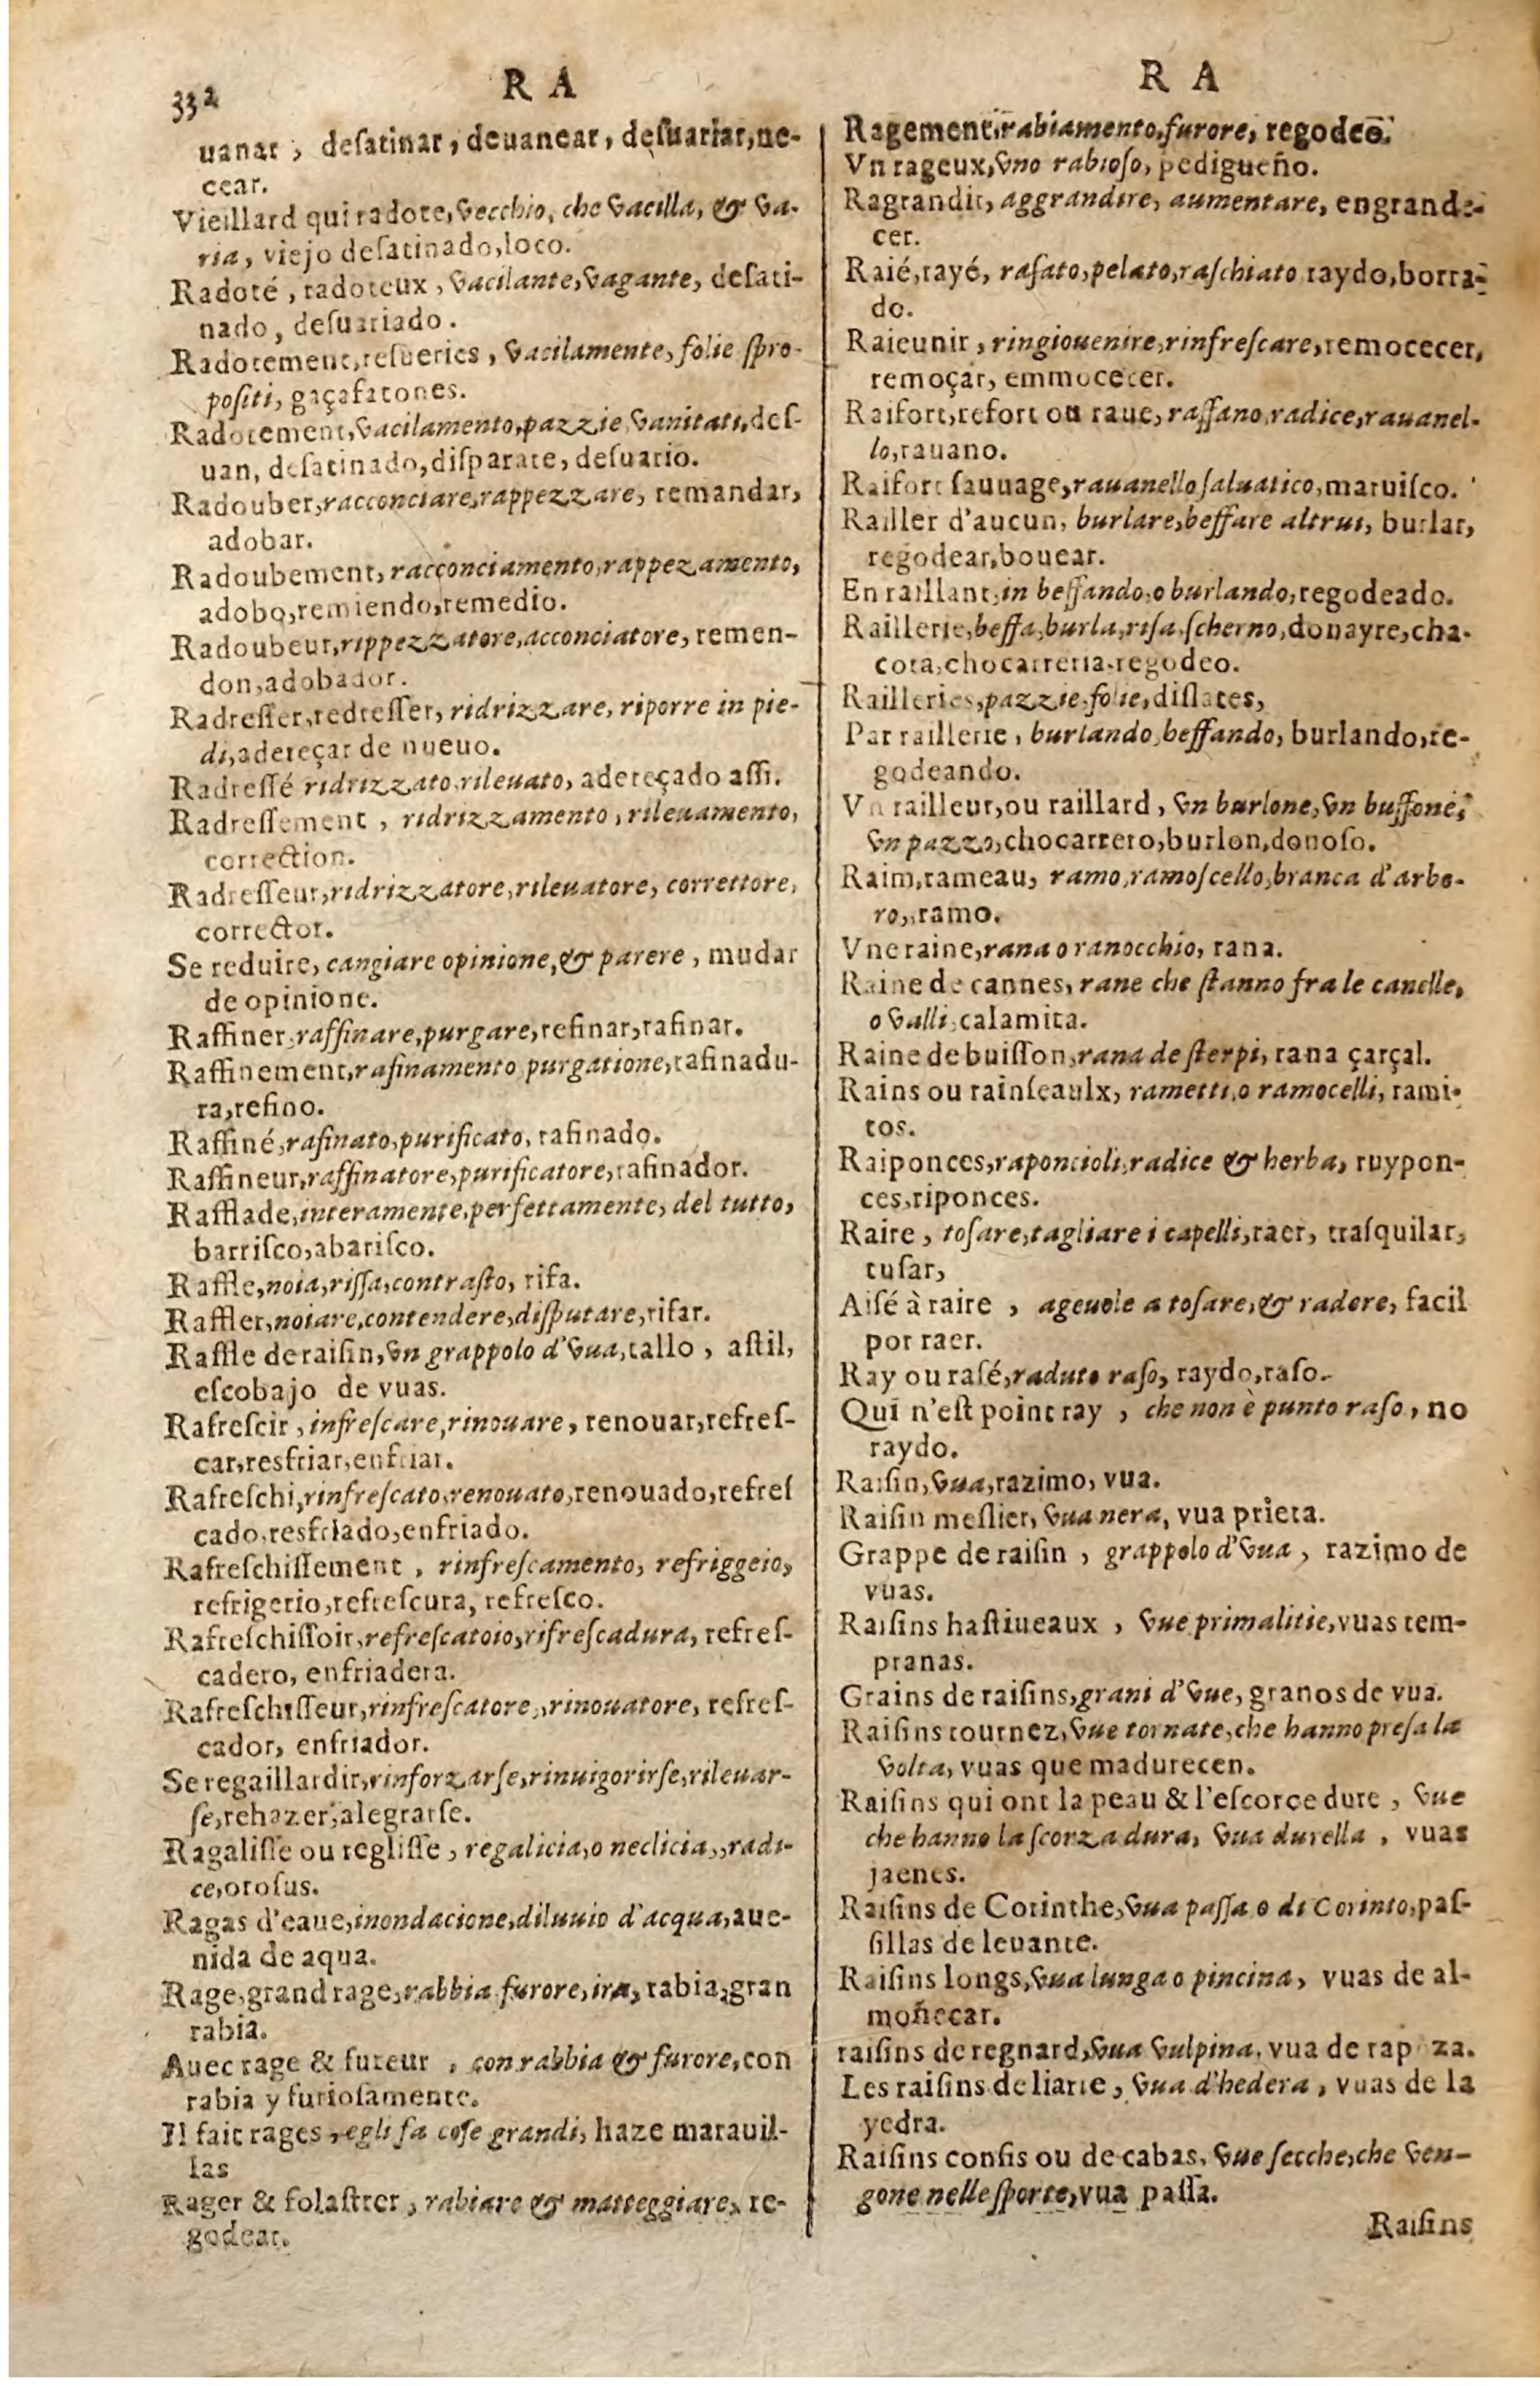 332
R A
uanar, desatinar, deuanear, desuariar, ne-
cear.
Vieillard qui radote, vecchio, che vacilla, & va-
ria, viejo desatinado, loco.
Radoté, radoteux, vacilante, vagante, desati-
nado, desuariado.
Radotement, resueries, vacilamente, folie spro-
positi, gaçafatones.
Radotement, vacilamento, pazzie vanitati, des-
uan, desatinado, disparate, desuario.
Radouber, racconciare, rappezzare, remandar,
adobar.
Radoubement, racconciamento, rappezamento,
adobo, remiendo, remedio.
Radoubeur, rippezzatore, acconciatore, remen-
don, adobador.
Radresser, redresser, ridrizzare, riporre in pie-
di, adereçar de nueuo.
Radressé ridrizzato, rileuato, adereçado assi.
Radressement, ridrizzamento, rileuamento,
correction.
Radresseur, ridrizzatore, rileuatore, correttore,
corrector.
Se reduire, cangiare opinione, & parere, mudar
de opinione.
Raffiner, raffinare, purgare, refinar, rafinar.
Raffinement, rafinamento purgatione, rafinadu-
ra, refino.
Raffiné, rafinato, purificato, rafinado.
Raffineur, raffinatore, purificatore, rafinador.
Rafflade, interamente, perfettamente, del tutto,
barrisco, abarisco.
Raffle, noia, rissa, contrasto, rifa.
Raffler, noiare, contendere, disputare, rifar.
Raffle de raisin, vn grappolo d'vua, tallo, astil,
escobajo de vuas.
Rafrescir, infrescare, rinouare, renouar, refres-
car, resfriar, enfriar.
Rafreschi, rinfrescato, renouato, renouado, refres
cado, resfriado, enfriado.
Rafreschissement, rinfrescamento, refriggeio,
refrigerio, refrescura, refresco.
Rafreschissoir, refrescatoio, rifrescadura, refres-
cadero, enfriadera.
Rafreschisseur, rinfrescatore, rinouatore, refres-
cador, enfriador.
Se regaillardir, rinforzarse, rinuigorirse, rileuar-
se, rehazer, alegrarse.
Ragalisse ou reglisse, regalicia, o neclicia, radi-
ce, orosus.
Ragas d'eaue, inondacione, diluuio d'acqua, aue-
nida de aqua.
Rage, grand rage, rabbia furore, ira, rabia, gran
rabia.
Auec rage & fureur, con rabbia & furore, con
rabia y furiosamente.
Il fait rages, egli fa cose grandi, haze marauil-
las
Rager & folastrer, rabiare & matteggiare, re-
godear.
R A
Ragement, rabiamento, furore, regodeo.
Vn rageux, vno rabioso, pedigueño.
Ragrandir, aggrandire, aumentare, engrande-
cer.
Raié, rayé, rasato, pelato, raschiato raydo, borra-
do.
Raieunir, ringiouenire, rinfrescare, remocecer,
remoçar, emmocecer.
Raifort, refort ou raue, raffano, radice, rauanel-
lo, rauano.
Raifort sauuage, rauanello saluatico, maruisco.
Railler d'aucun, burlare, beffare altrui, burlar,
regodear, bouear.
En raillant, in beffando, o burlando, regodeado.
Raillerie, beffa, burla, risa, scherno, donayre, cha-
cota, chocarreria, regodeo.
Railleries, pazzie, folie, dislates,
Par raillerie, burlando, beffando, burlando, re-
godeando.
Vn railleur, ou raillard, vn burlone, vn buffone,
vn pazzo, chocarrero, burlon, donoso.
Raim, rameau, ramo, ramoscello, branca d'arbo-
ro, ramo.
Vne raine, rana o ranocchio, rana.
Raine de cannes, rane che stanno fra le canelle,
o valli, calamita.
Raine de buisson, rana de sterpi, rana çarçal.
Rains ou rainseaulx, rametti, o ramocelli, rami-
tos.
Raiponces, raponcioli, radice & herba, ruypon-
ces, riponces.
Raire, tosare, tagliare i capelli, raer, trasquilar,
tusar,
Aisé à raire, ageuole a tosare, & radere, facil
por raer.
Ray ou rasé, raduto raso, raydo, raso.
Qui n'est point ray, che non è punto raso, no
raydo.
Raisin, vua, razimo, vua.
Raisin meslier, vua nera, vua prieta.
Grappe de raisin, grappolo d'vua, razimo de
vuas.
Raisins hastiueaux, vue primalitie, vuas tem-
pranas.
Grains de raisins, grani d'vue, granos de vua.
Raisins tournez, vue tornate, che hanno presa la
volta, vuas que madurecen.
Raisins qui ont la peau & l'escorce dure, vue
che hanno la scorza dura, vua durella, vuas
jaenes.
Raisins de Corinthe, vua passa o di Corinto, pas-
sillas de leuante.
Raisins longs, vua lunga o pincina, vuas de al-
moñecar.
raisins de regnard, vua vulpina, vua de rap za.
Les raisins de liarre, vua d'hedera, vuas de la
yedra.
Raisins confis ou de cabas, vue secche, che ven-
gone nelle sporte, vua passa.
Raisins